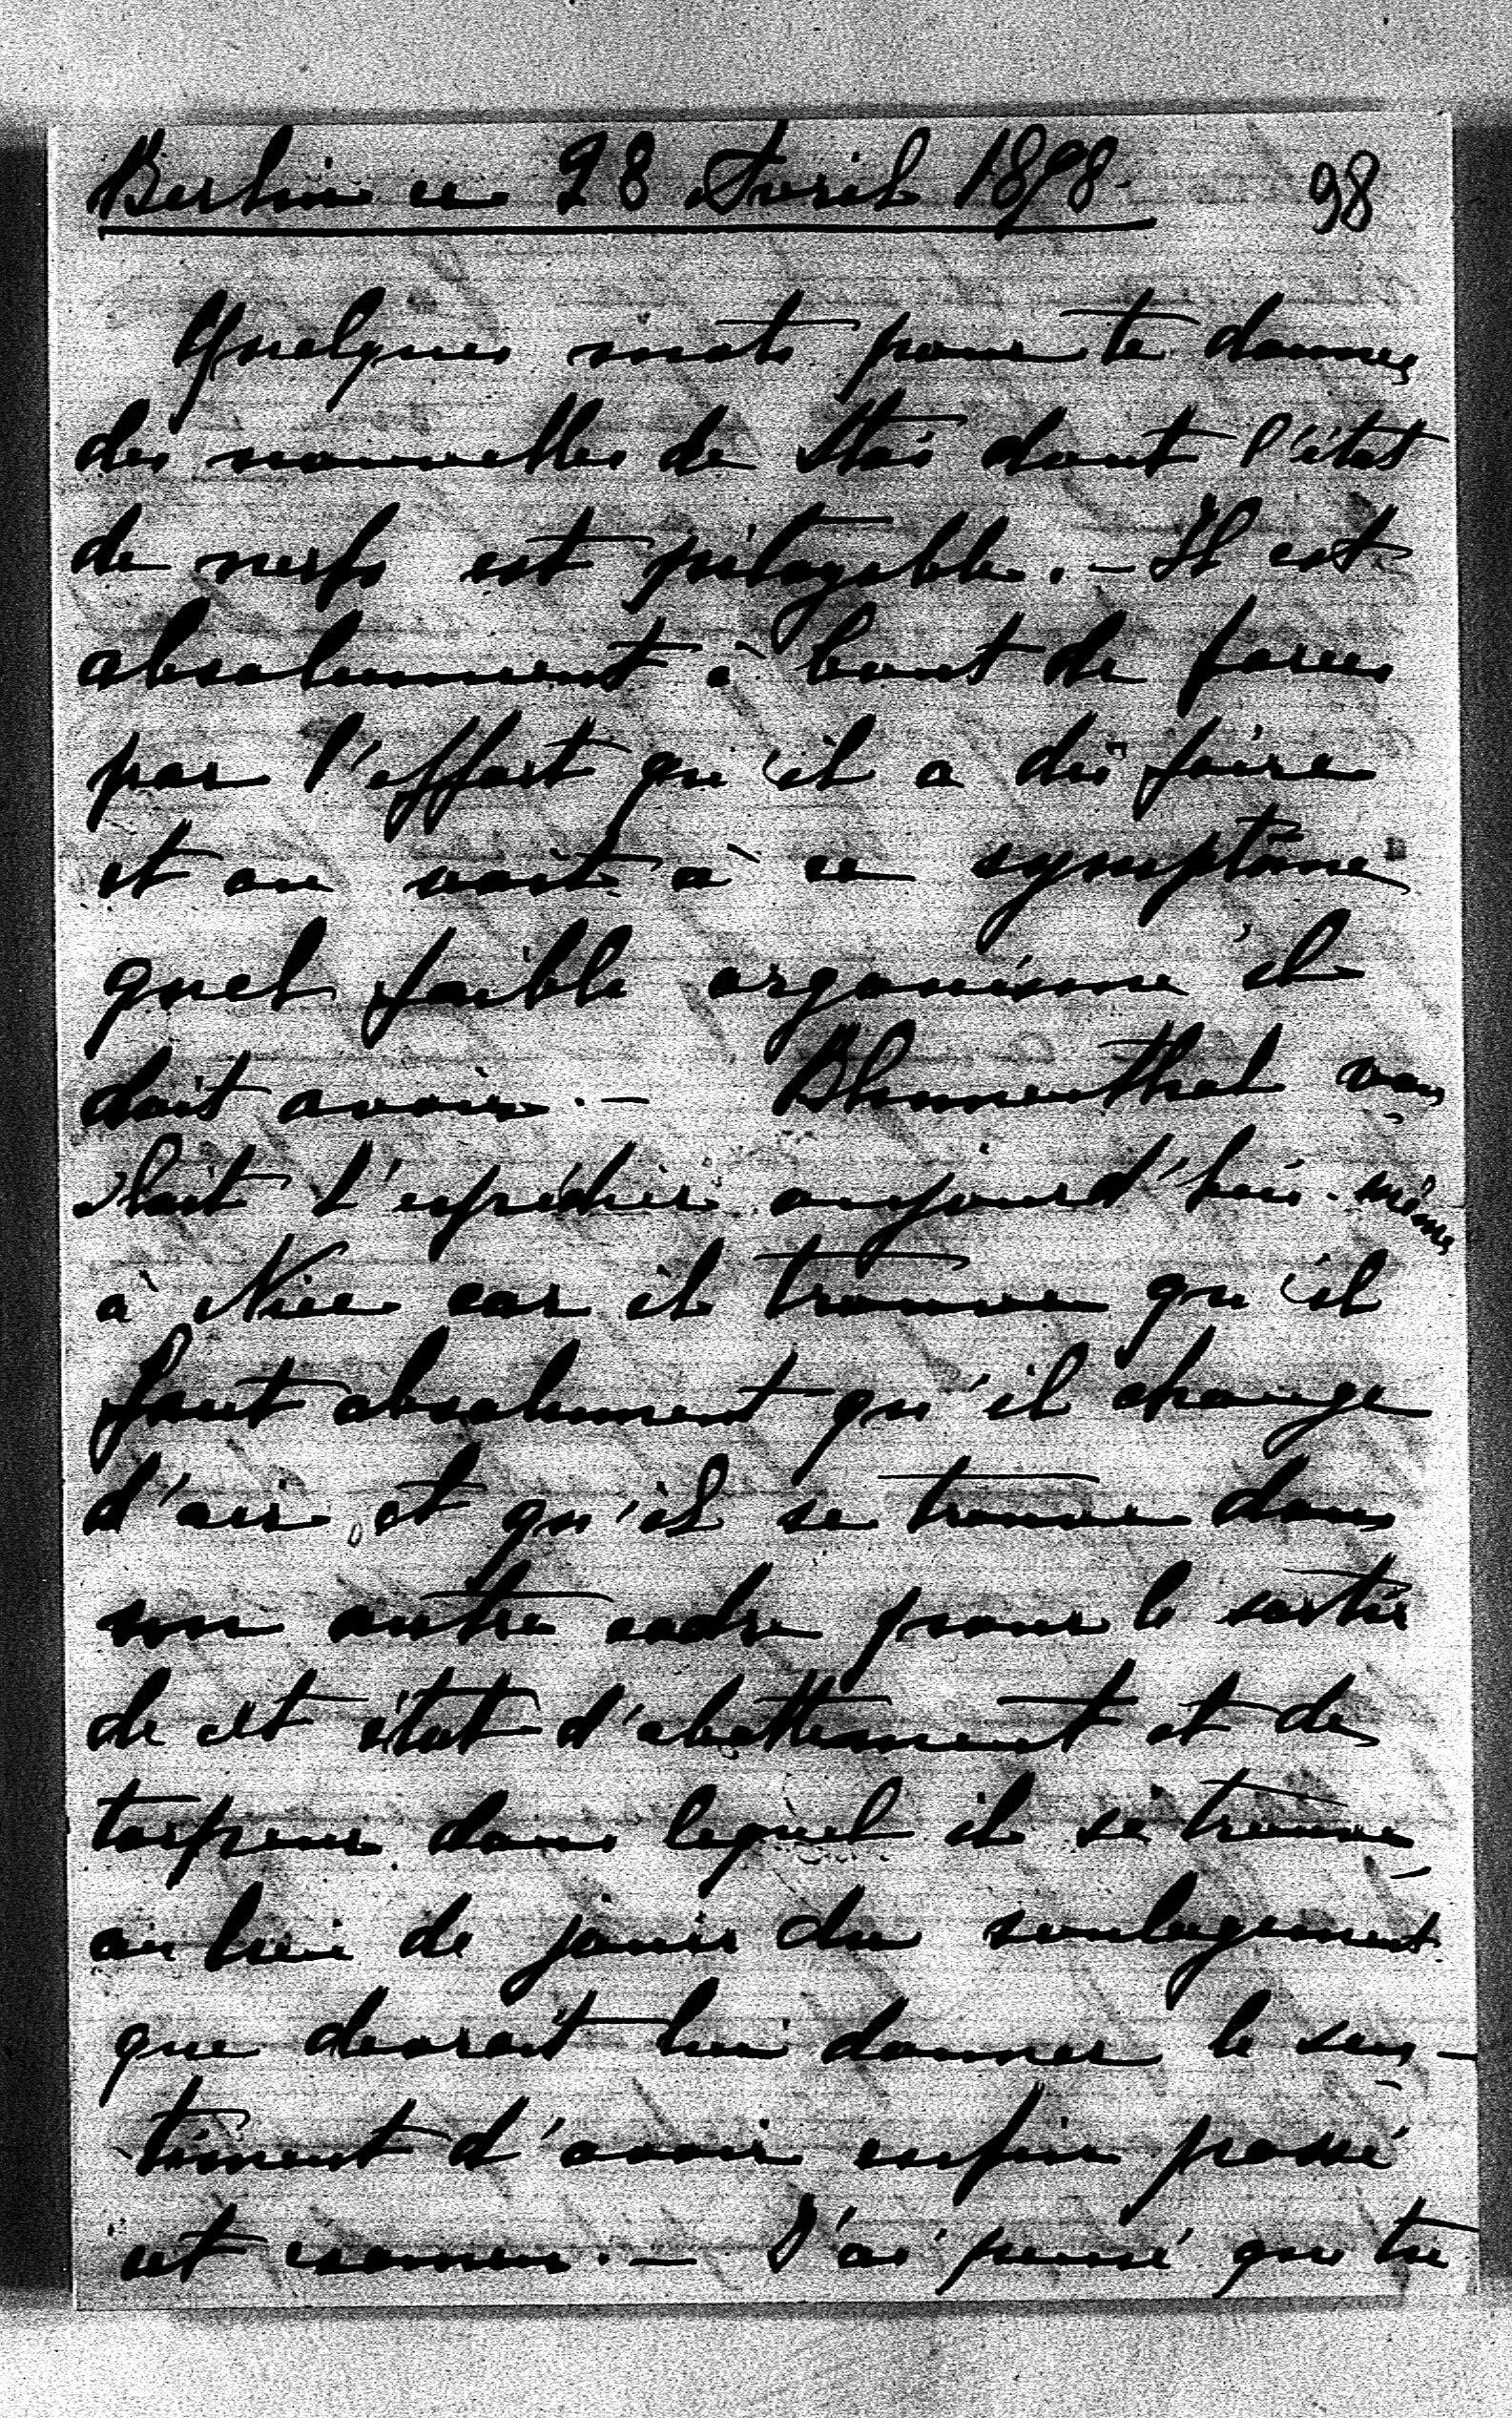 Berlin ce 28 Avril 1898. 98
Quelques mots pour te donner
des nouvelles de Stas dont l'état
de nerfs est pitoyable. – Il est
absolument à bout de forces
par l'effort qu'il a dû faire
et on voit à ce symptôme
quel faible organisme il
doit avoir. – Blumenthal vou
lait l'expédier aujourd'hui même
à Nice car il trouve qu'il
faut absolument qu'il change
d'air et qu'il se trouve dans
un autre cadre pour le sortir
de cet état d'abattement et de
torpeur dans lequel il se trouve
au lieu de jouir du soulagement
que devrait lui donner le sen-
timent d'avoir enfin passé
cet examen. – J'ai pensé que tu